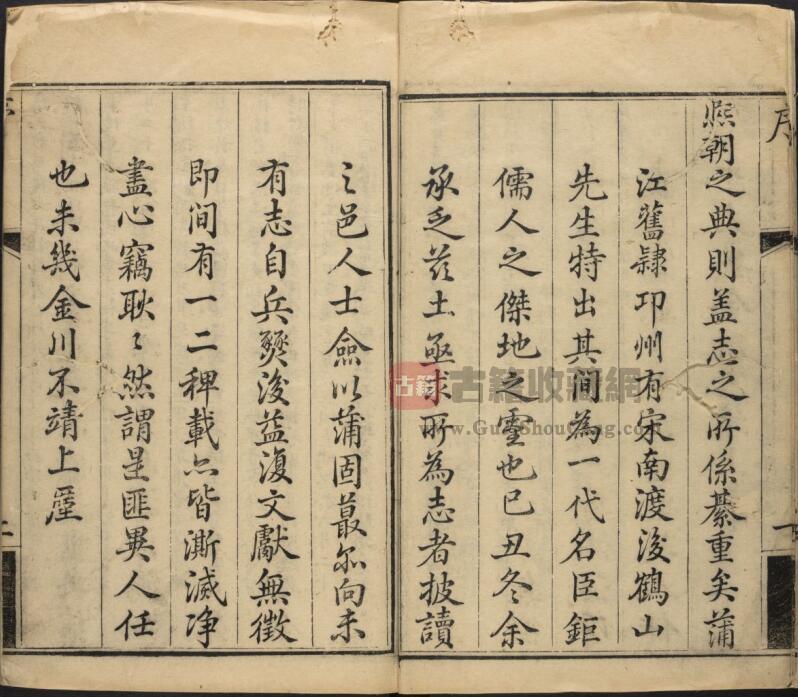 序
熈朝之典則盖志之所係綦重矣蒲
江舊隷邛州有宋南渡後鶴山
先生特出其间為一代名臣鉅
儒人之傑地之靈也已丑冬余
承乏兹土亟求所為志者披讀
一
之邑人士僉以蒲固蕞尔向未
有志自兵燹後益復文獻無徵
即间有一二稗載亦皆澌滅净
盡心竊耿〻然謂是匪異人任
也未幾金川不靖上廑
二
古籍 古籍收藏網
www.GuJiShouCang.com